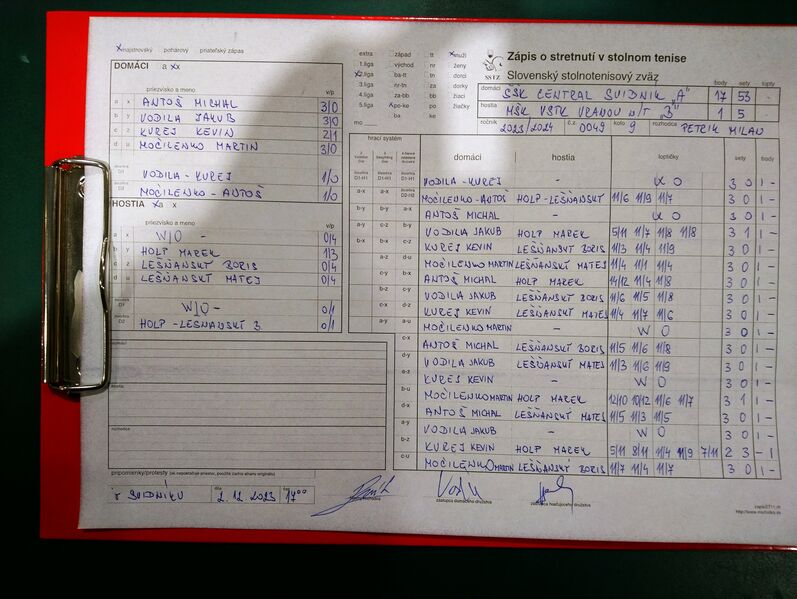 x majstrovský pohárový priateľský zápas
DOMÁCI a x x
priezvisko a meno v/p
a x ANTOŠ MICHAL 3/0
b y VODILA JAKUB 3/0
c z KUREJ KEVIN 2/1
d u MOČILENKO MARTIN 3/0
D1 VODILA - KUREJ 1/0
D2 MOČILENKO - ANTOŠ 1/0
HOSTIA x a x
priezvisko a meno v/p
a x W/O - 0/4
b y HOLP MAREK 1/3
c z LEŠŇANSKÝ BORIS 0/4
d u LEŠŇANSKÝ MATEJ 0/4
D1 W/O - 0/1
D2 HOLP - LEŠŇANSKÝ B. 0/1
domáci
hostia
rozhodca
pripomienky/protesty
v SVIDNÍKU dňa 2.12.2023 čas 17:00
extra západ tt x muži
1.liga východ nr ženy
x 2.liga ba-tt tn dorci
3.liga nr-tn za dorky
4.liga za-bb bb žiaci
5.liga po-ke po žiačky
mo ba ke
SSTZ
Zápis o stretnutí v stolnom tenise
Slovenský stolnotenisový zväz
body sety lopty
domáci MŠK CENTRAL SVIDNÍK "A" 17 53 -
hostia MŠK VSTK VRANOV n/T "B" 1 5 -
ročník 2023/2024 č.z. 0049 kolo 9 rozhodca PETRIK MILAN
hrací systém
domáci hostia loptičky sety body
D1-H1 D1-H1 D1-H1 VODILA - KUREJ - W O 3 0 1 -
a-x a-x D2-H2 MOČILENKO - ANTOŠ HOLP - LEŠŇANSKÝ 11/6 11/9 11/7 3 0 1 -
b-y b-y a-x ANTOŠ MICHAL - W O 3 0 1 -
a-y c-z b-y VODILA JAKUB HOLP MAREK 5/11 11/7 11/8 11/8 3 1 1 -
b-x b-x c-z KUREJ KEVIN LEŠŇANSKÝ BORIS 11/3 11/4 11/9 3 0 1 -
a-z d-u MOČILENKO MARTIN LEŠŇANSKÝ MATEJ 11/4 11/1 11/4 3 0 1 -
c-y a-y ANTOŠ MICHAL HOLP MAREK 14/12 11/4 11/8 3 0 1 -
b-z b-z VODILA JAKUB LEŠŇANSKÝ BORIS 11/6 11/5 11/8 3 0 1 -
c-x c-u KUREJ KEVIN LEŠŇANSKÝ MATEJ 11/4 11/7 11/6 3 0 1 -
a-y d-x MOČILENKO MARTIN - W O 3 0 1 -
ANTOŠ MICHAL LEŠŇANSKÝ BORIS 11/5 11/6 11/8 3 0 1 -
VODILA JAKUB LEŠŇANSKÝ MATEJ 11/3 11/6 11/9 3 0 1 -
c-x KUREJ KEVIN - W O 3 0 1 -
d-y MOČILENKO MARTIN HOLP MAREK 12/10 10/12 11/6 11/7 3 1 1 -
a-u ANTOŠ MICHAL LEŠŇANSKÝ MATEJ 11/5 11/3 11/5 3 0 1 -
VODILA JAKUB - W O 3 0 1 -
KUREJ KEVIN HOLP MAREK 5/11 8/11 11/4 11/9 7/11 2 3 - 1
MOČILENKO MARTIN LEŠŇANSKÝ BORIS 11/7 11/4 11/7 3 0 1 -
rozhodca zástupca domáceho družstva zástupca hosťujúceho družstva